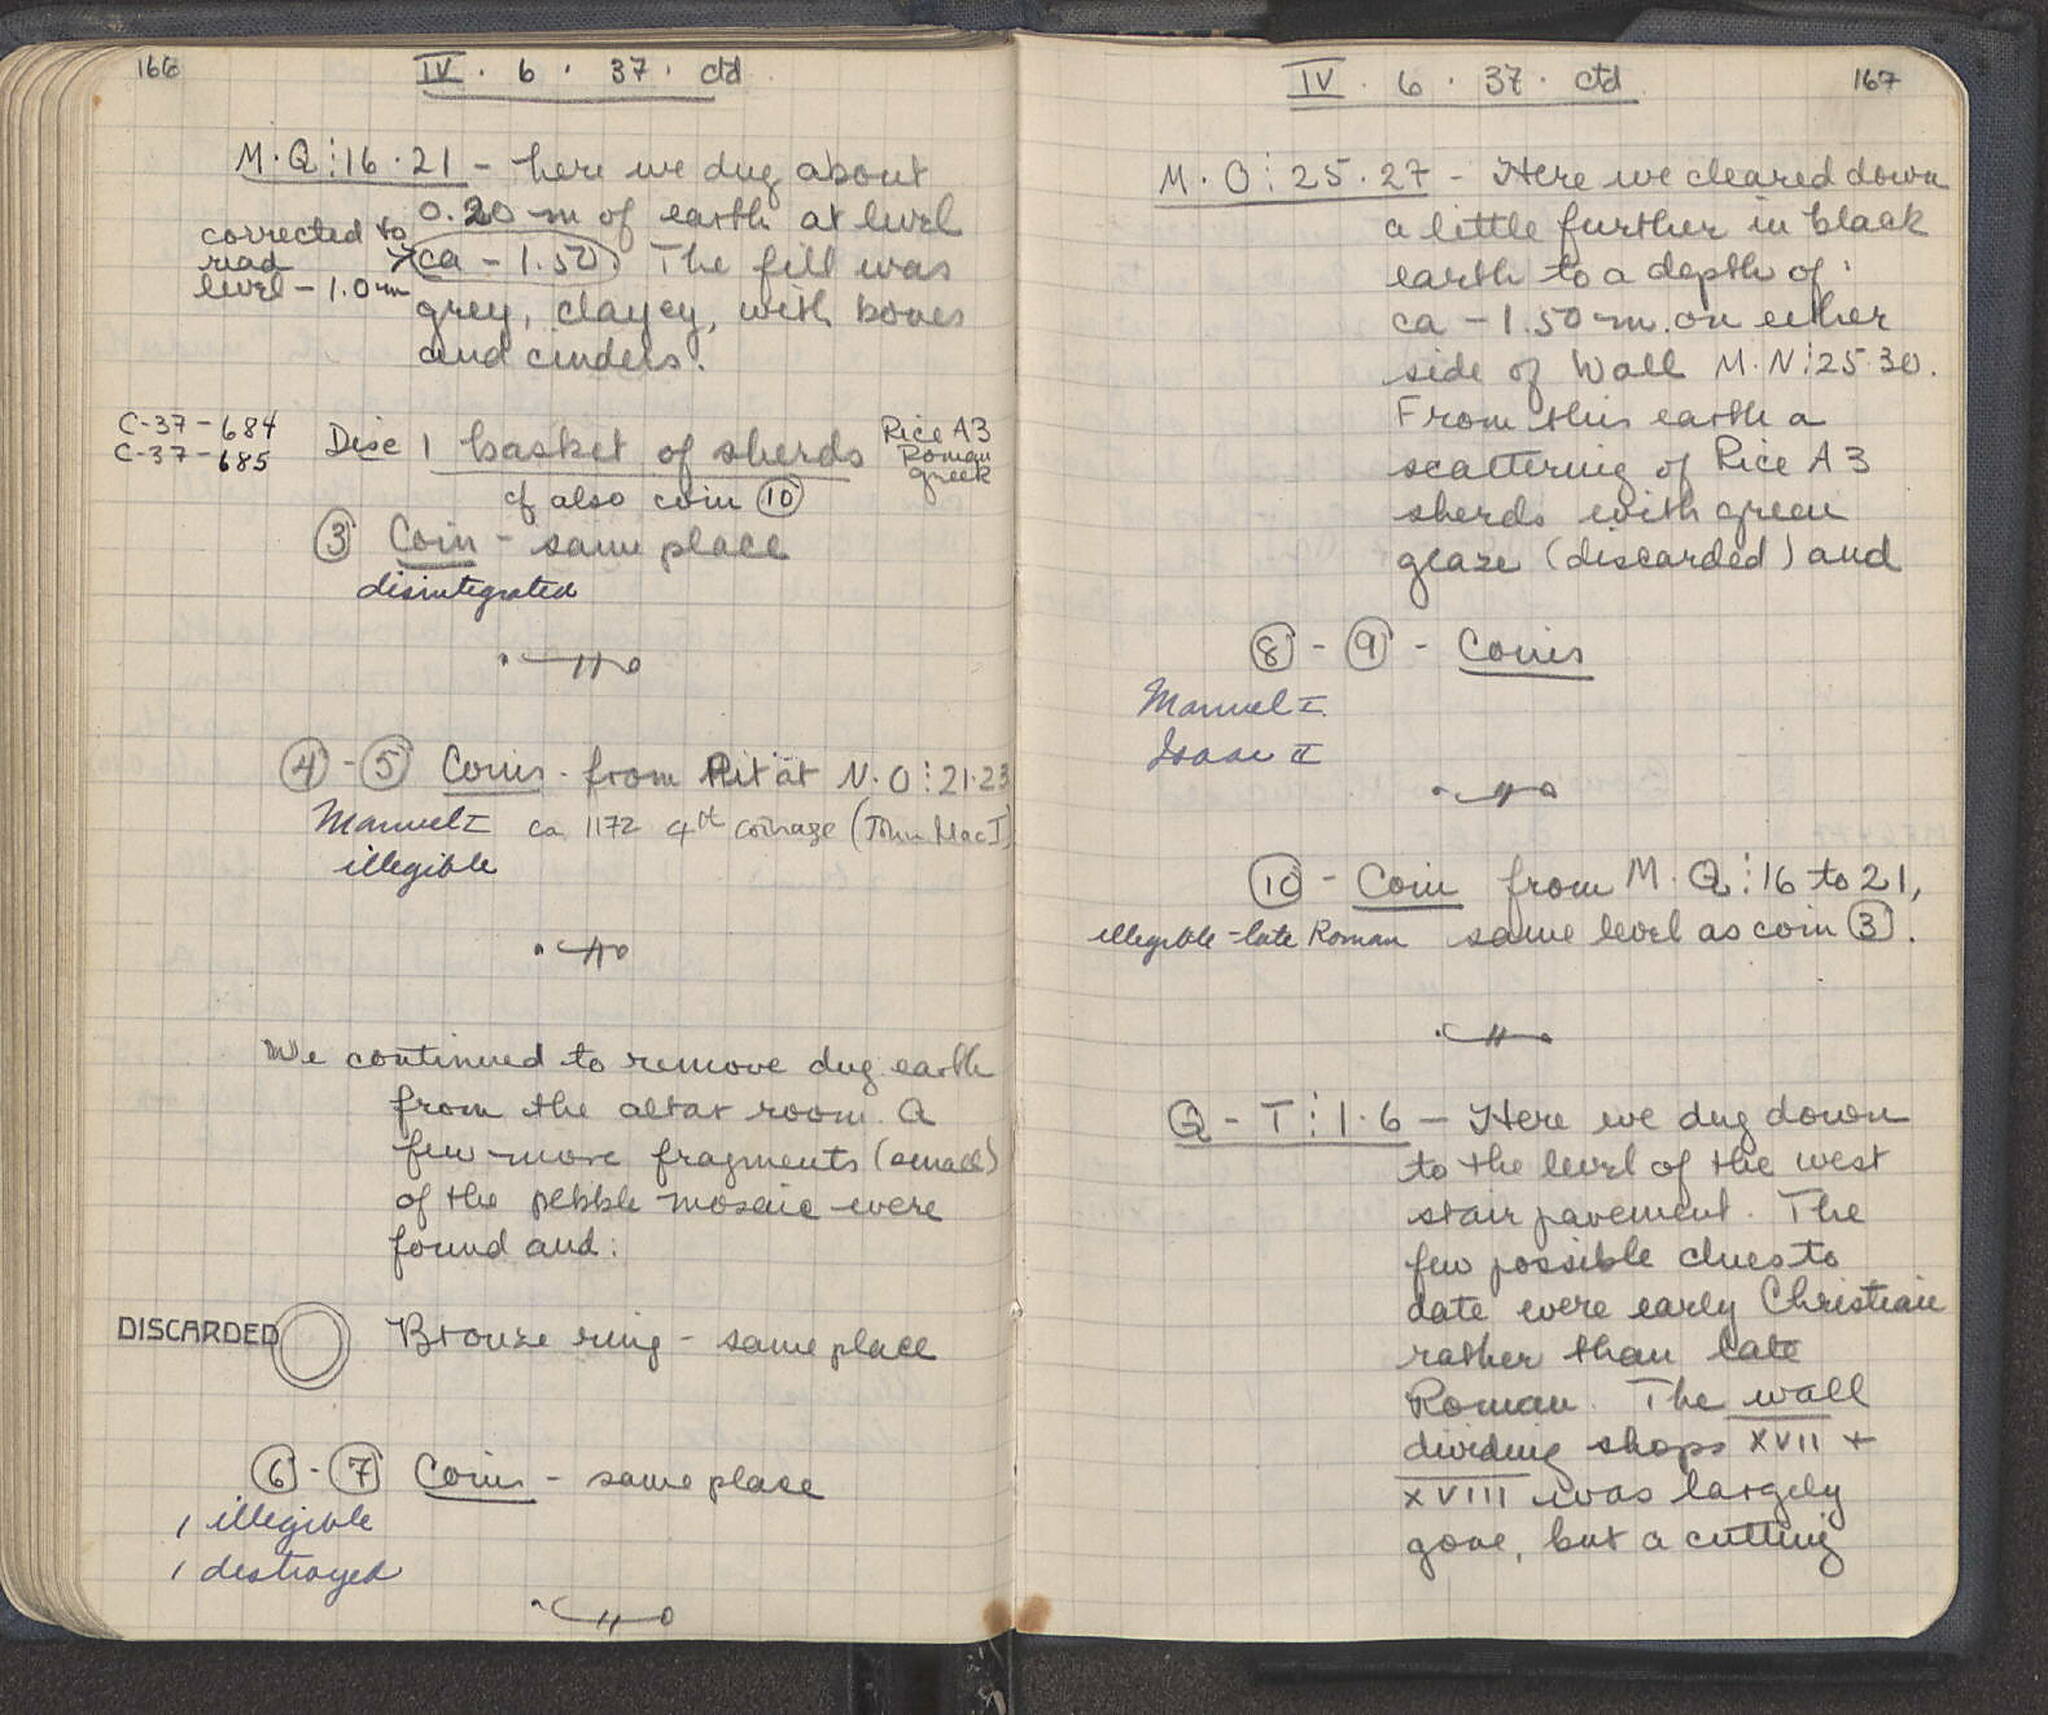 166
IV . 6 . 37 . ctd
M.Q⋮16.21 - here we dug about
0.20 m of earth at level
corrected to
road
level - 1.0 m
ca - 1.50. The fill was
grey, clayey, with bones
and cinders.
C-37-684
C-37-685
Disc 1 basket of sherds
Rice A3
Roman
greek
cf also coin (10)
(3) Coin - same place
disintegrated
(4)-(5) Coins - from Pit at N.O⋮21.23
Manuel I ca 1172 4th coinage (John Mac I)
illegible
We continued to remove dug earth
from the altar room. A
few more fragments (small)
of the pebble mosaic were
found and:
DISCARDED
Bronze ring - same place
(6)-(7) Coins - same place
1 illegible
1 destroyed
IV . 6 . 37 . ctd
167
M.O⋮25.27 - Here we cleared down
a little further in black
earth to a depth of
ca - 1.50 m. on either
side of Wall M.N⋮25.30.
From this earth a
scattering of Rice A3
sherds with green
glaze (discarded) and
(8)-(9) - Coins
Manuel I
Isaac II
(10) - Coin from M.Q⋮16 to 21,
illegible - late Roman same level as coin (3).
Q - T⋮1.6 - Here we dug down
to the level of the west
stair pavement. The
few possible clues to
date were early Christian
rather than late
Roman. The wall
dividing shops XVII +
XVIII was largely
gone, but a cutting